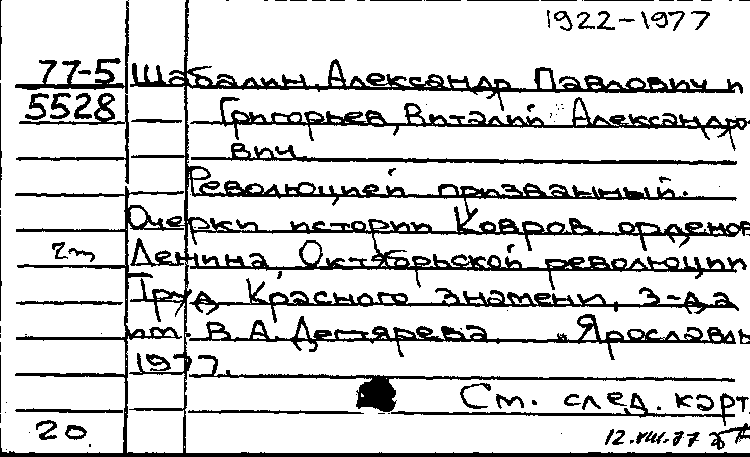 1922-1977
77-5 Шабалин, Александр Павлович и
5528 Григорьев, Виталий Александро-
вич.
Революцией призванный.
Очерки истории Ковров. орденов
Ленина, Октябрьской революции
Труд. Красного знамени, з-да
им. В. А. Дегтярева. Ярославль
1977.
См. след. карт
20. 12.VIII.77